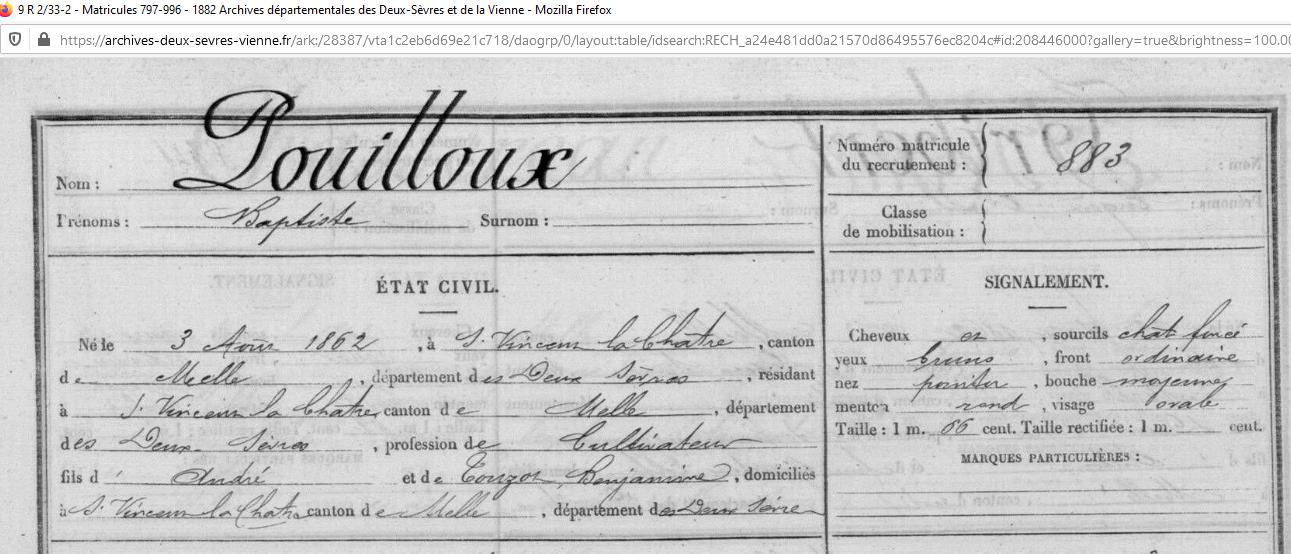 9 R 2/33-2 - Matricules 797-996 - 1882 Archives départementales des Deux-Sèvres et de la Vienne - Mozilla Firefox
https://archives-deux-sevres-vienne.fr/ark:/28387/vta1c2eb6d69e21c718/daogrp/0/layout:table/idsearch:RECH_a24e481dd0a21570d86495576ec8204c#id:208446000?gallery=true&brightness=100.00
Nom : Pouilloux
Prénoms : Baptiste Surnom :
Numéro matricule
du recrutement : 883
Classe
de mobilisation :
ÉTAT CIVIL.
Né le 3 Août 1862, à St Vincent la Châtre, canton
de Melle, département des Deux Sèvres, résidant
à St Vincent la Châtre, canton de Melle, département
des Deux Sèvres, profession de Cultivateur
fils d' André et de Benjamine, domiciliés
à St Vincent la Châtre canton de Melle, département des Deux Sèvres
SIGNALEMENT.
Cheveux et, sourcils chat. foncé
yeux bruns, front ordinaire
nez pointu, bouche moyenne
menton rond, visage ovale
Taille : 1 m. 66 cent. Taille rectifiée : 1 m. cent.
MARQUES PARTICULIÈRES :